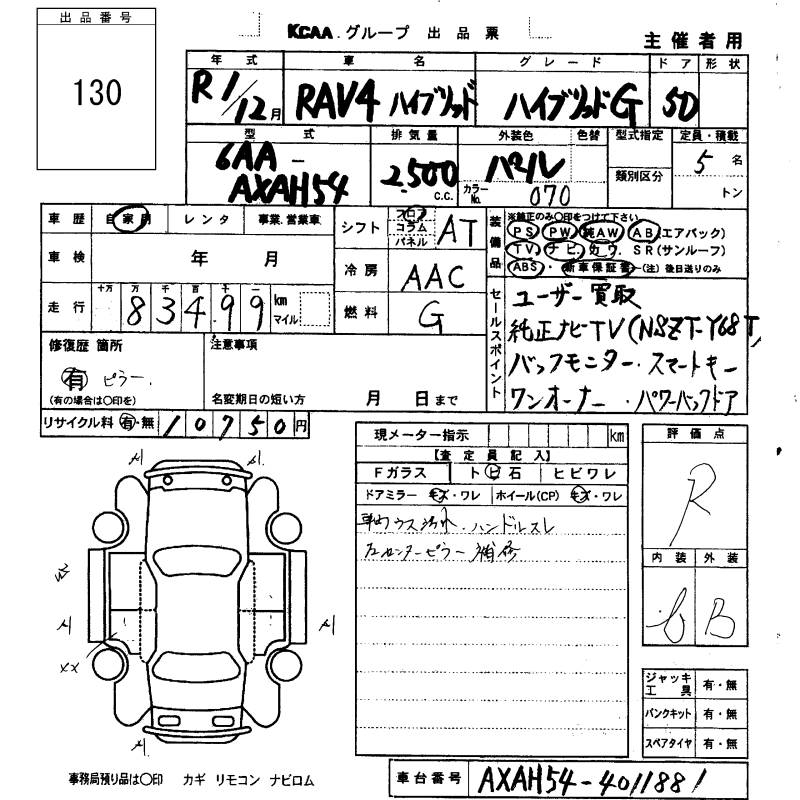 出品番号
130
KCAA グループ 出品票
主催者用
年式 車名 グレード ドア 形状
R1/12月 RAV4 ハイブリッド ハイブリッドG 5D
型式 排気量 外装色 色替 型式指定 定員・積載
6AA-AXAH54 2,500 C.C. パール 類別区分 5 名
カラーNo. 070 トン
車歴 自家用 レンタ 事業.営業車
シフト フロア コラム パネル AT
車検 年 月
冷房 AAC
走行 十万 万 千 百 十 一
83499 km マイル
燃料 G
装備品 ※純正のみ〇印をつけて下さい
PS PW 純AW AB(エアバック)
TV ナビ カワ SR(サンルーフ)
ABS・新車保証書-(注)後日送りのみ
セールスポイント
ユーザー買取
純正ナビTV(NSZT-Y68T)
バックモニター・スマートキー
ワンオーナー・パワーバックドア
修復歴 箇所
有 ピラー.
(有の場合は〇印を)
注意事項
名変期日の短い方 月 日まで
リサイクル料 有・無 10750円
現メーター指示 km
【査定員記入】
Fガラス ト ビ 石 ヒビワレ
ドアミラー キズ・ワレ ホイール(CP) キズ・ワレ
ハンドルスレ
左センターピラー補修
評価点
R
内装 外装
B
ジャッキ工具 有・無
パンクキット 有・無
スペアタイヤ 有・無
XX
事務局預り品は〇印 カギ リモコン ナビロム
車台番号 AXAH54-4011881